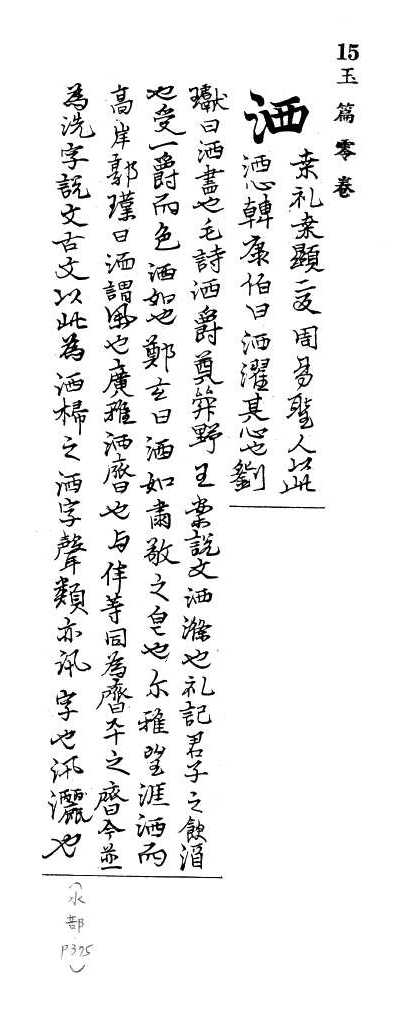 15 玉篇零卷
洒 桒礼桒顯二反周昜聖人以此
洒心韓康伯曰洒濯其心也劉
瓛曰洒盡也毛詩洒爵奠斝野王案說文洒滌也礼記君子之飲酒
也受一爵而色洒如也鄭玄曰洒如肅敬之皃也尒雅望涯洒而
高岸郭璞曰洒謂 也廣雅洒齊也与伴等同為齊 之齊今並
為洗字說文古文以此為洒埽之洒字聲類亦汛字也汛灑也
(水部 P375)